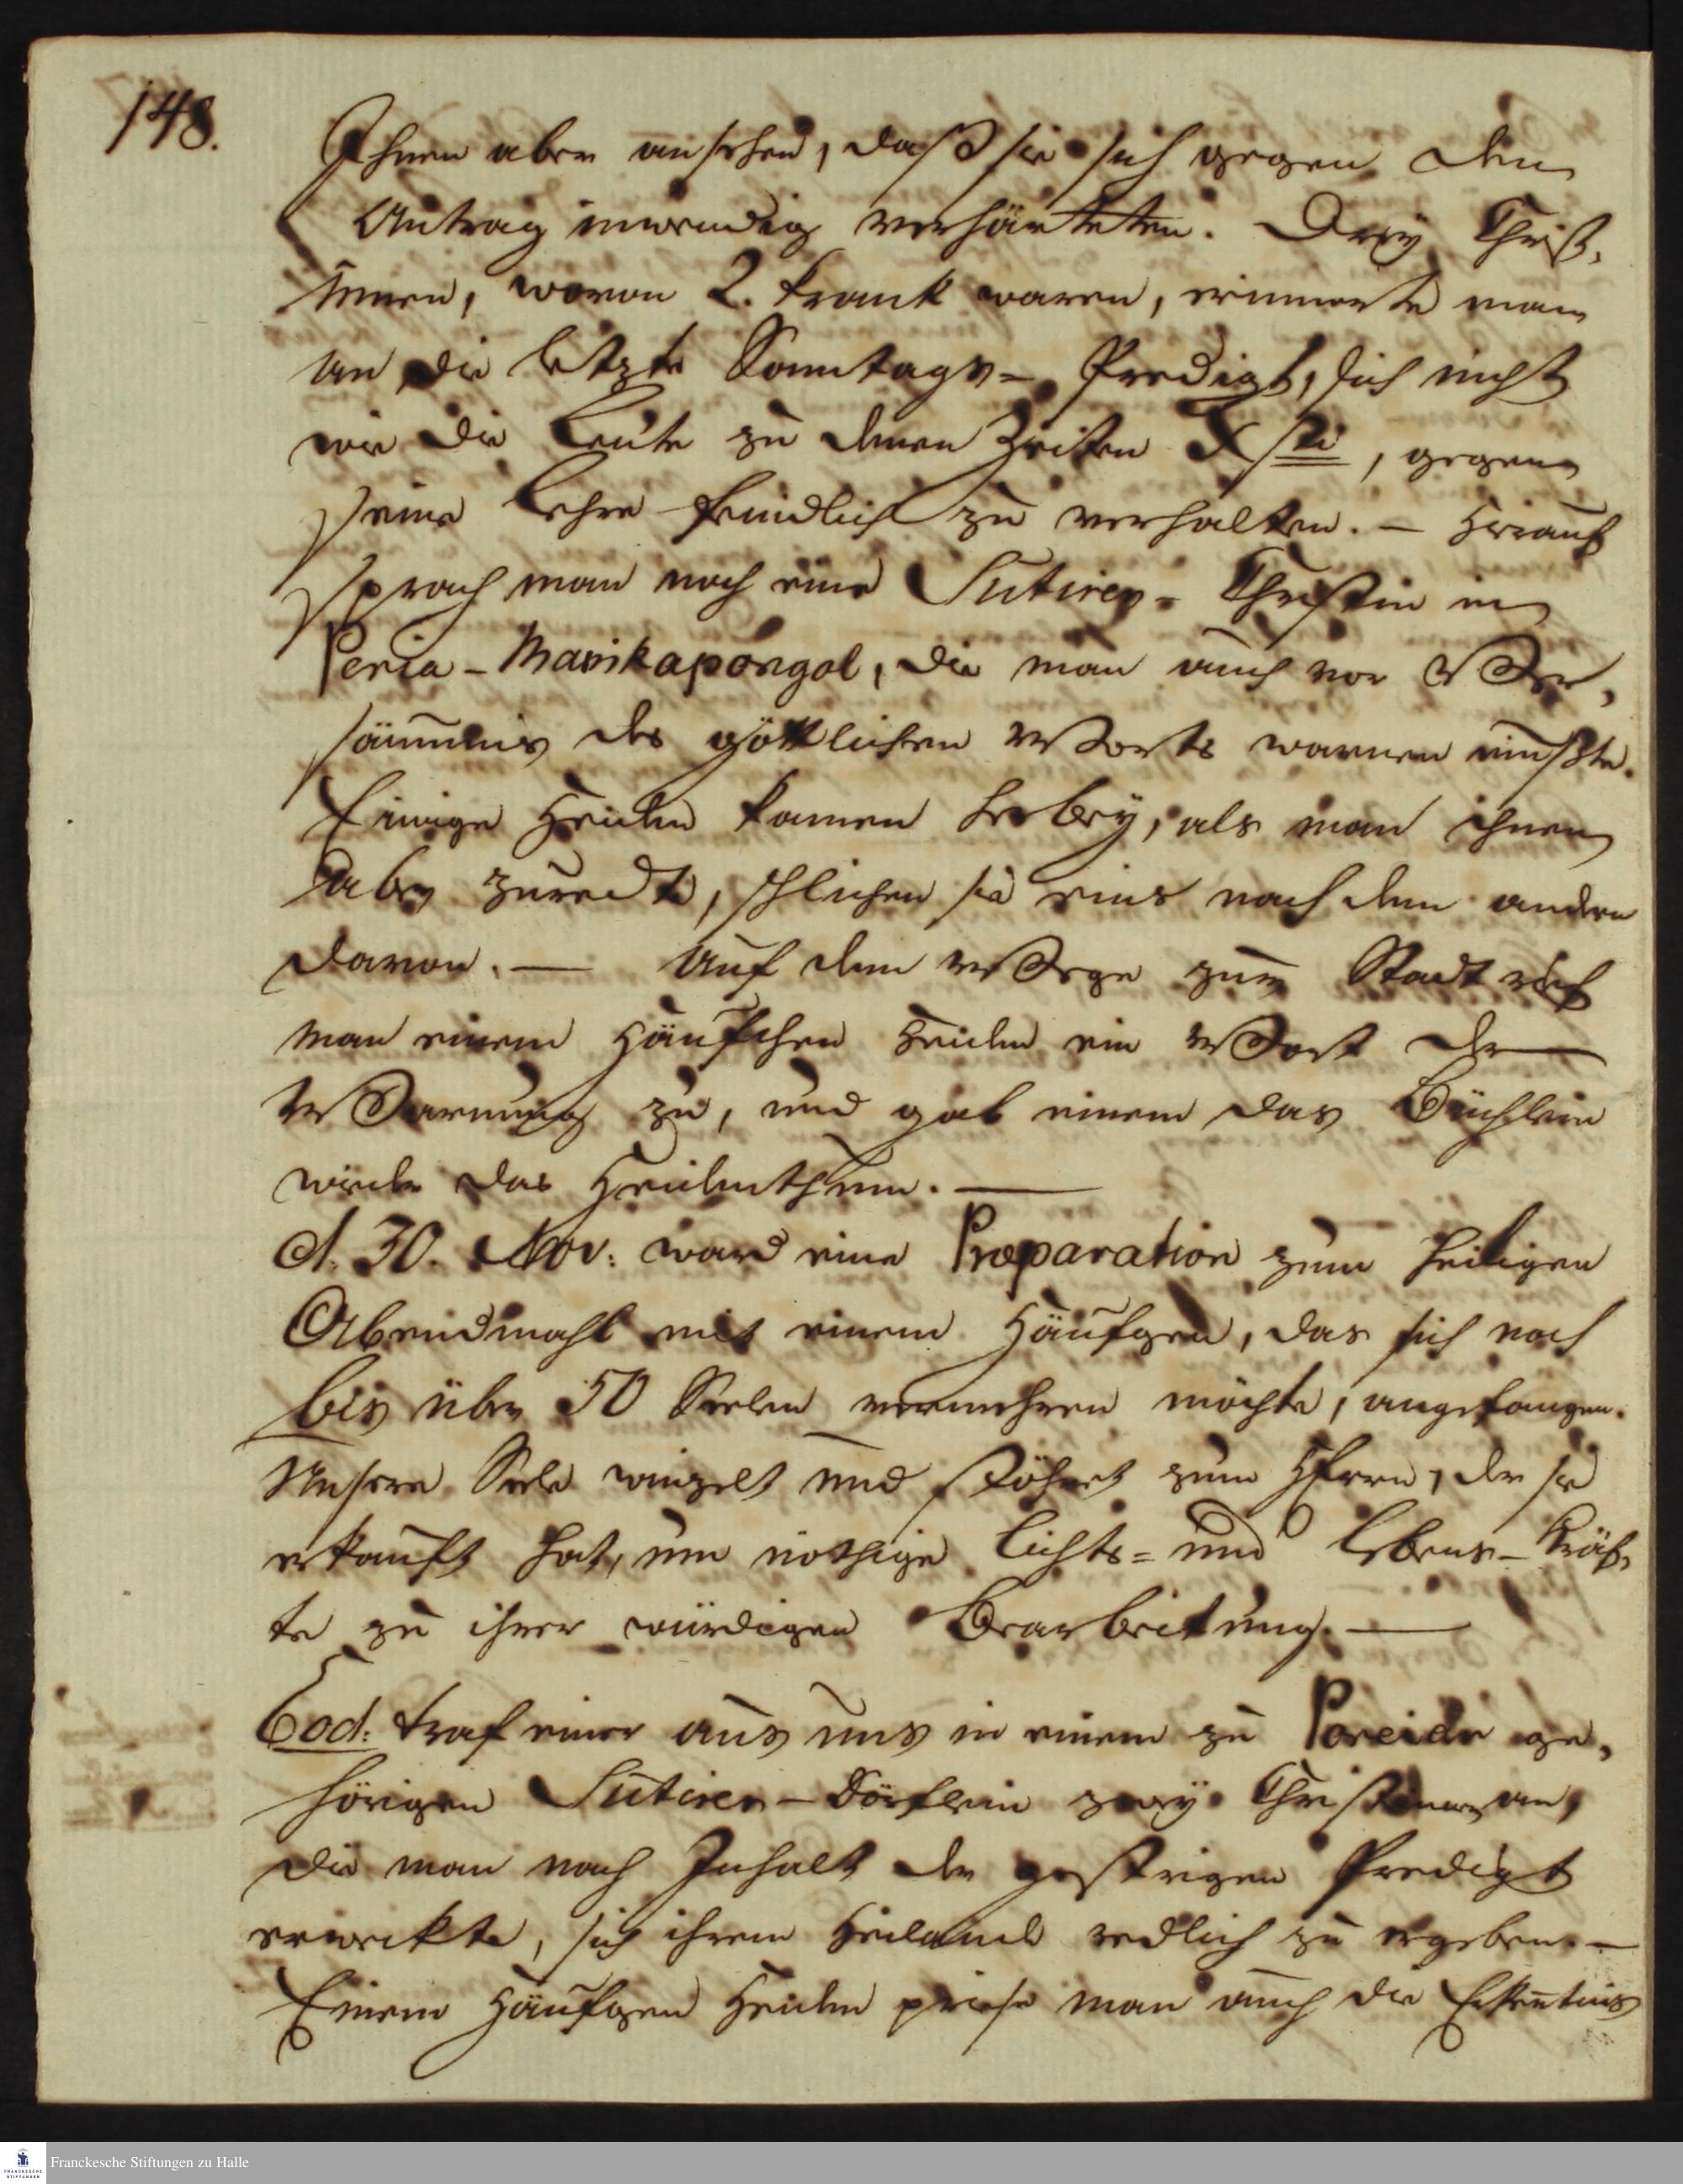 148.
Ihnen aber ansehen, daß sie sich gegen den
Antrag inwendig verhärteten. Drey Chris¬
tinnen, wovon 2. kranck waren, erinnerte man
an die letzte Sonntags-Predigt, sich nicht
wie die Leute zu denen Zeiten Xsti, gegen
seine Lehre feindlich zu verhalten. – Hierauf
sprach man noch eine Sutirer-Christin in
Peria-Manikapongol, die man auch vor Ver¬
säumnis des göttlichen Worts warnen muste.
Einige Heiden kamen herbey, als man ihnen
aber zuredte, schlichen sie eins nach dem andern
davon. — Auf dem Wege zur Stadt rief
man einem Häufchen Heiden ein Wort der
Warnung zu, und gab einem das Büchlein
wieder das Heidenthum. —
d. 30. Nov: ward eine Præparation zum heiligen
Abendmahl mit einem Häufgen, das sich noch
bis über 50 Seelen vermehren möchte, angefangen.
Unsere Seele winzelt und stöhnet zum HErrn, der sie
erkauft hat, um nöthige Lichts- und Lebens-Kräf¬
te zu ihrer würdigen Bearbeitung. —
Eod: traf einer aus uns in einem zu Poreiar ge¬
hörigen Sutirer-Dörflein zwey Christinnen an,
die man nach Inhalt der gestrigen Predigt
erweckte, sich ihrem Heilande redlich zu ergeben. –
Einem Häufgen Heiden priese man auch die Erkentnis
Franckesche Stiftungen zu Halle